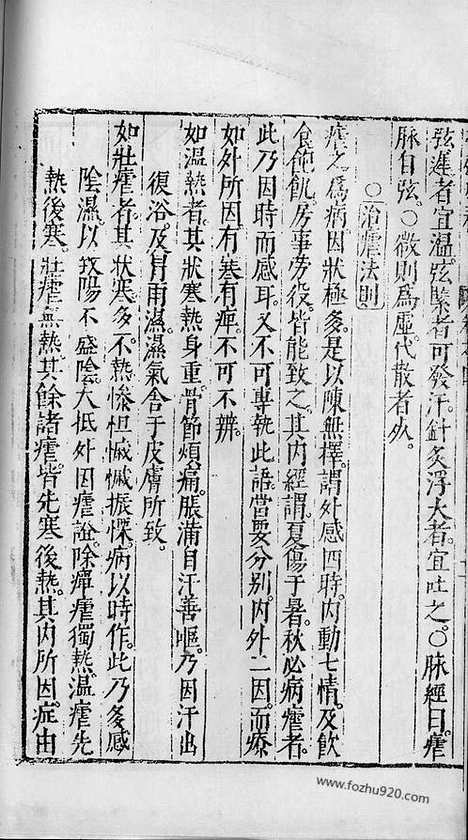 弦遲者宜溫。弦緊者可發汗。針灸浮大者。宜吐之。○脉經曰。瘧
脉自弦。○微則為虛。代散者死。
○治瘧法則
瘧之為病因狀極多。是以陳無擇。謂外感四時。內動七情。及飲
食飽飢。房事勞役。皆能致之。其內經謂。夏傷于暑。秋必病瘧者。
此乃因時而感耳。又不可專執此語。當要分別。內外二因。而療
如外所因。有寒有痺。不可不辨。
如溫熱者。其狀寒熱身重。骨節煩痛。脹滿自汗善嘔。乃因汗出
復浴。及冐雨濕。濕氣舍于皮膚所致。
如壯瘧者。其狀寒多。不熱慘怛慽慽振慄。病以時作。此乃多感
陰濕。以致陽不盛陰。大抵外因瘧證。除癉瘧獨熱。溫瘧先
熱後寒。壯瘧無熱。其餘諸瘧。皆先寒後熱。其內所因。症由
www.fozhu920.com